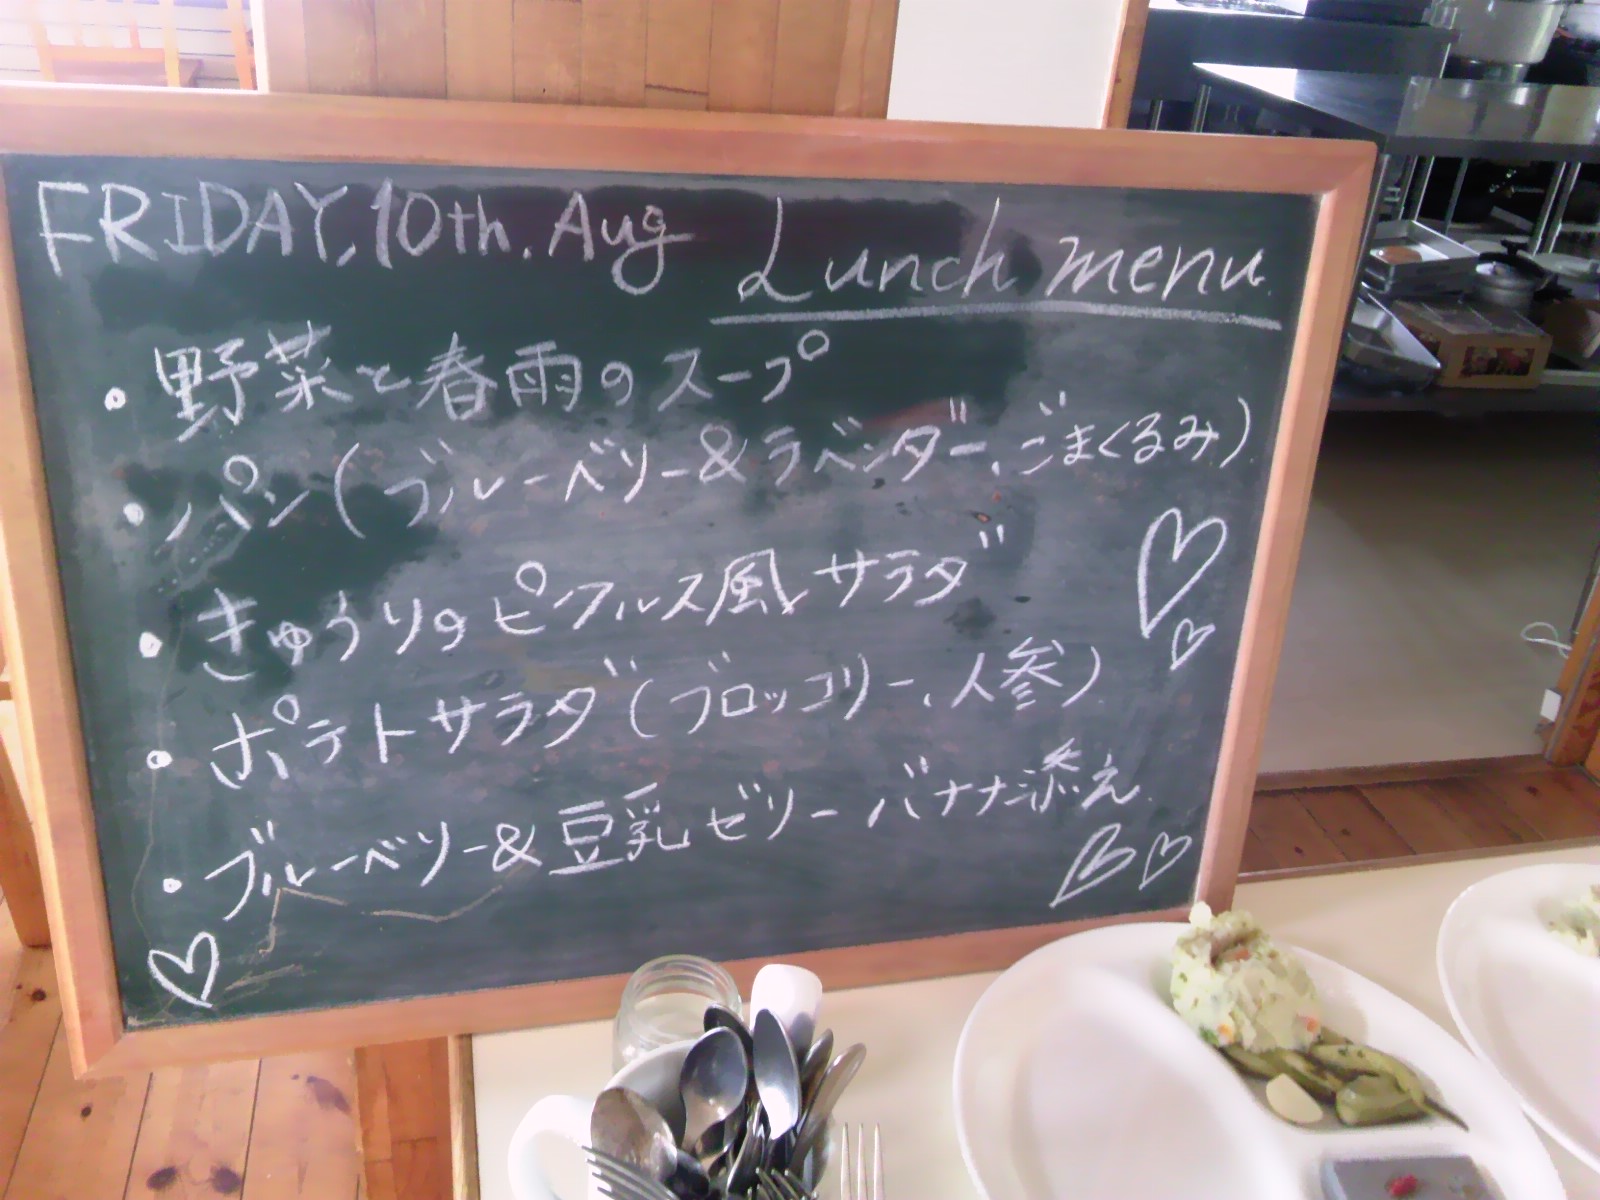 FRIDAY, 10th. Aug Lunch menu
・野菜と春雨のスープ
・パン(ブルーベリー&ラベンダー、ごまくるみ)
・きゅうりのピクルス風サラダ
・ポテトサラダ(ブロッコリー、人参)
・ブルーベリー&豆乳ゼリー バナナ添え